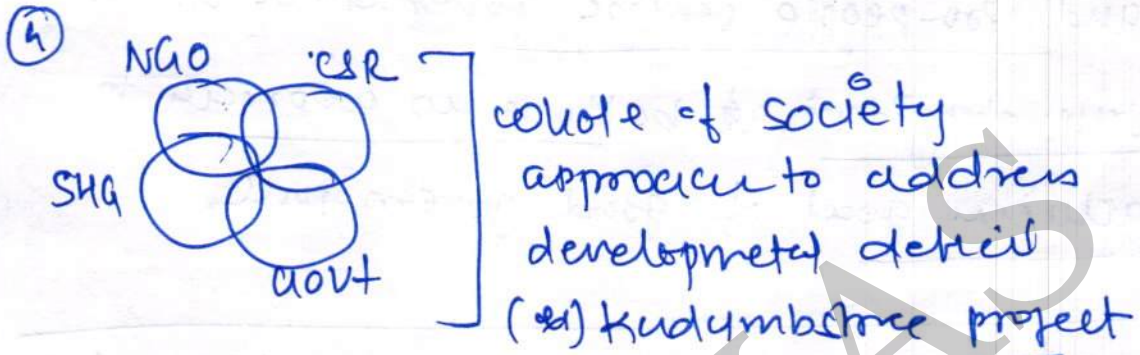 4
NGO CSR
SHG
Govt
whole of society
approach to address
developmetal deficit
(ex) Kudumbshree project
AS